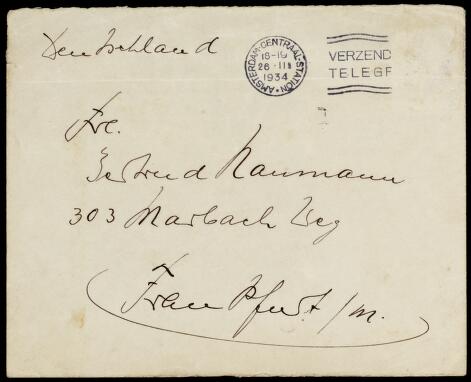 Deutschland
AMSTERDAM-CENTRAAL-STATION
18-19
26 III
1934
VERZEND
TELEGR
Frl.
Gertrud Naumann
303 Marbach Weg
Frankfurt /m.